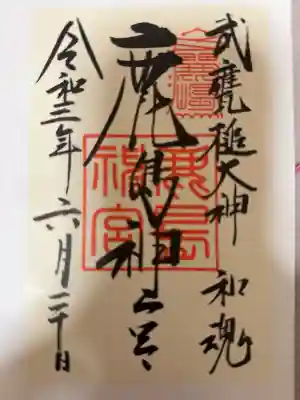 武甕槌大神 和魂
鹿島神宮
鹿島神宮
令和三年六月二十日